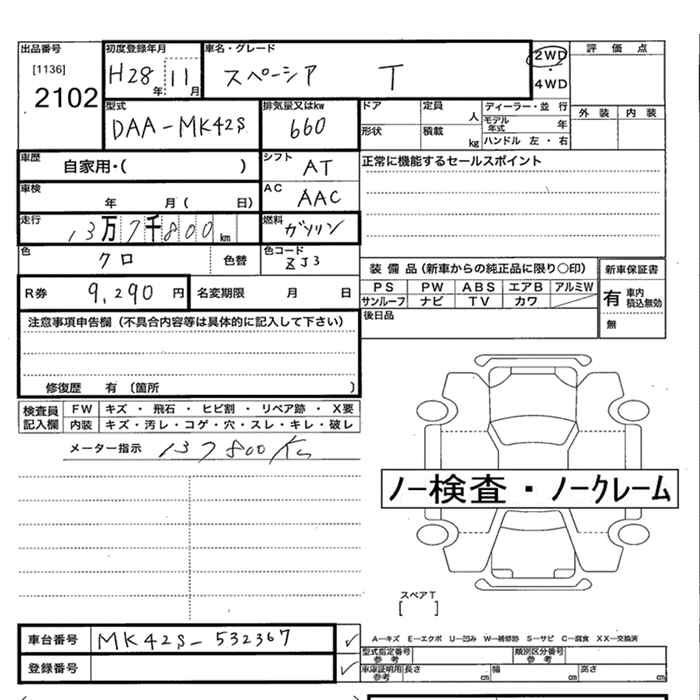 出品番号 初度登録年月 車名・グレード 2WD・4WD 評価点
[1136] 2102 H28年 11月 スペーシア T
型式 排気量又はkw ドア 定員 人 ディーラー・並行 外装 内装
DAA-MK42S 660 形状 積載 kg モデル年式 年 ハンドル 左・右
車歴 自家用・( ) シフト AT 正常に機能するセールスポイント
車検 年 月( 日) AC AAC
走行 13万7千800km 燃料 ガソリン
色 クロ 色替 色コード ZJ3
装備品(新車からの純正品に限り○印) 新車保証書
R券 9,290円 名変期限 月 日
PS PW ABS エアB アルミW 有 車内積込無効
サンルーフ ナビ TV カワ 無
後日品
注意事項申告欄(不具合内容等は具体的に記入して下さい)
修復歴 有 (箇所 )
検査員記入欄 FW キズ・飛石・ヒビ割・リペア跡・X要
内装 キズ・汚レ・コゲ・穴・スレ・キレ・破レ
メーター指示 137800Km
ノー検査・ノークレーム
スペアT
[ ]
車台番号 MK42S-532367 ✓
登録番号 ✓
A―キズ E―エクボ U―凹み W―補修跡 S―サビ C―腐食 XX―交換済
型式指定番号 参考 類別区分番号 参考
車庫証明用 参考 長さ cm 幅 cm 高さ cm